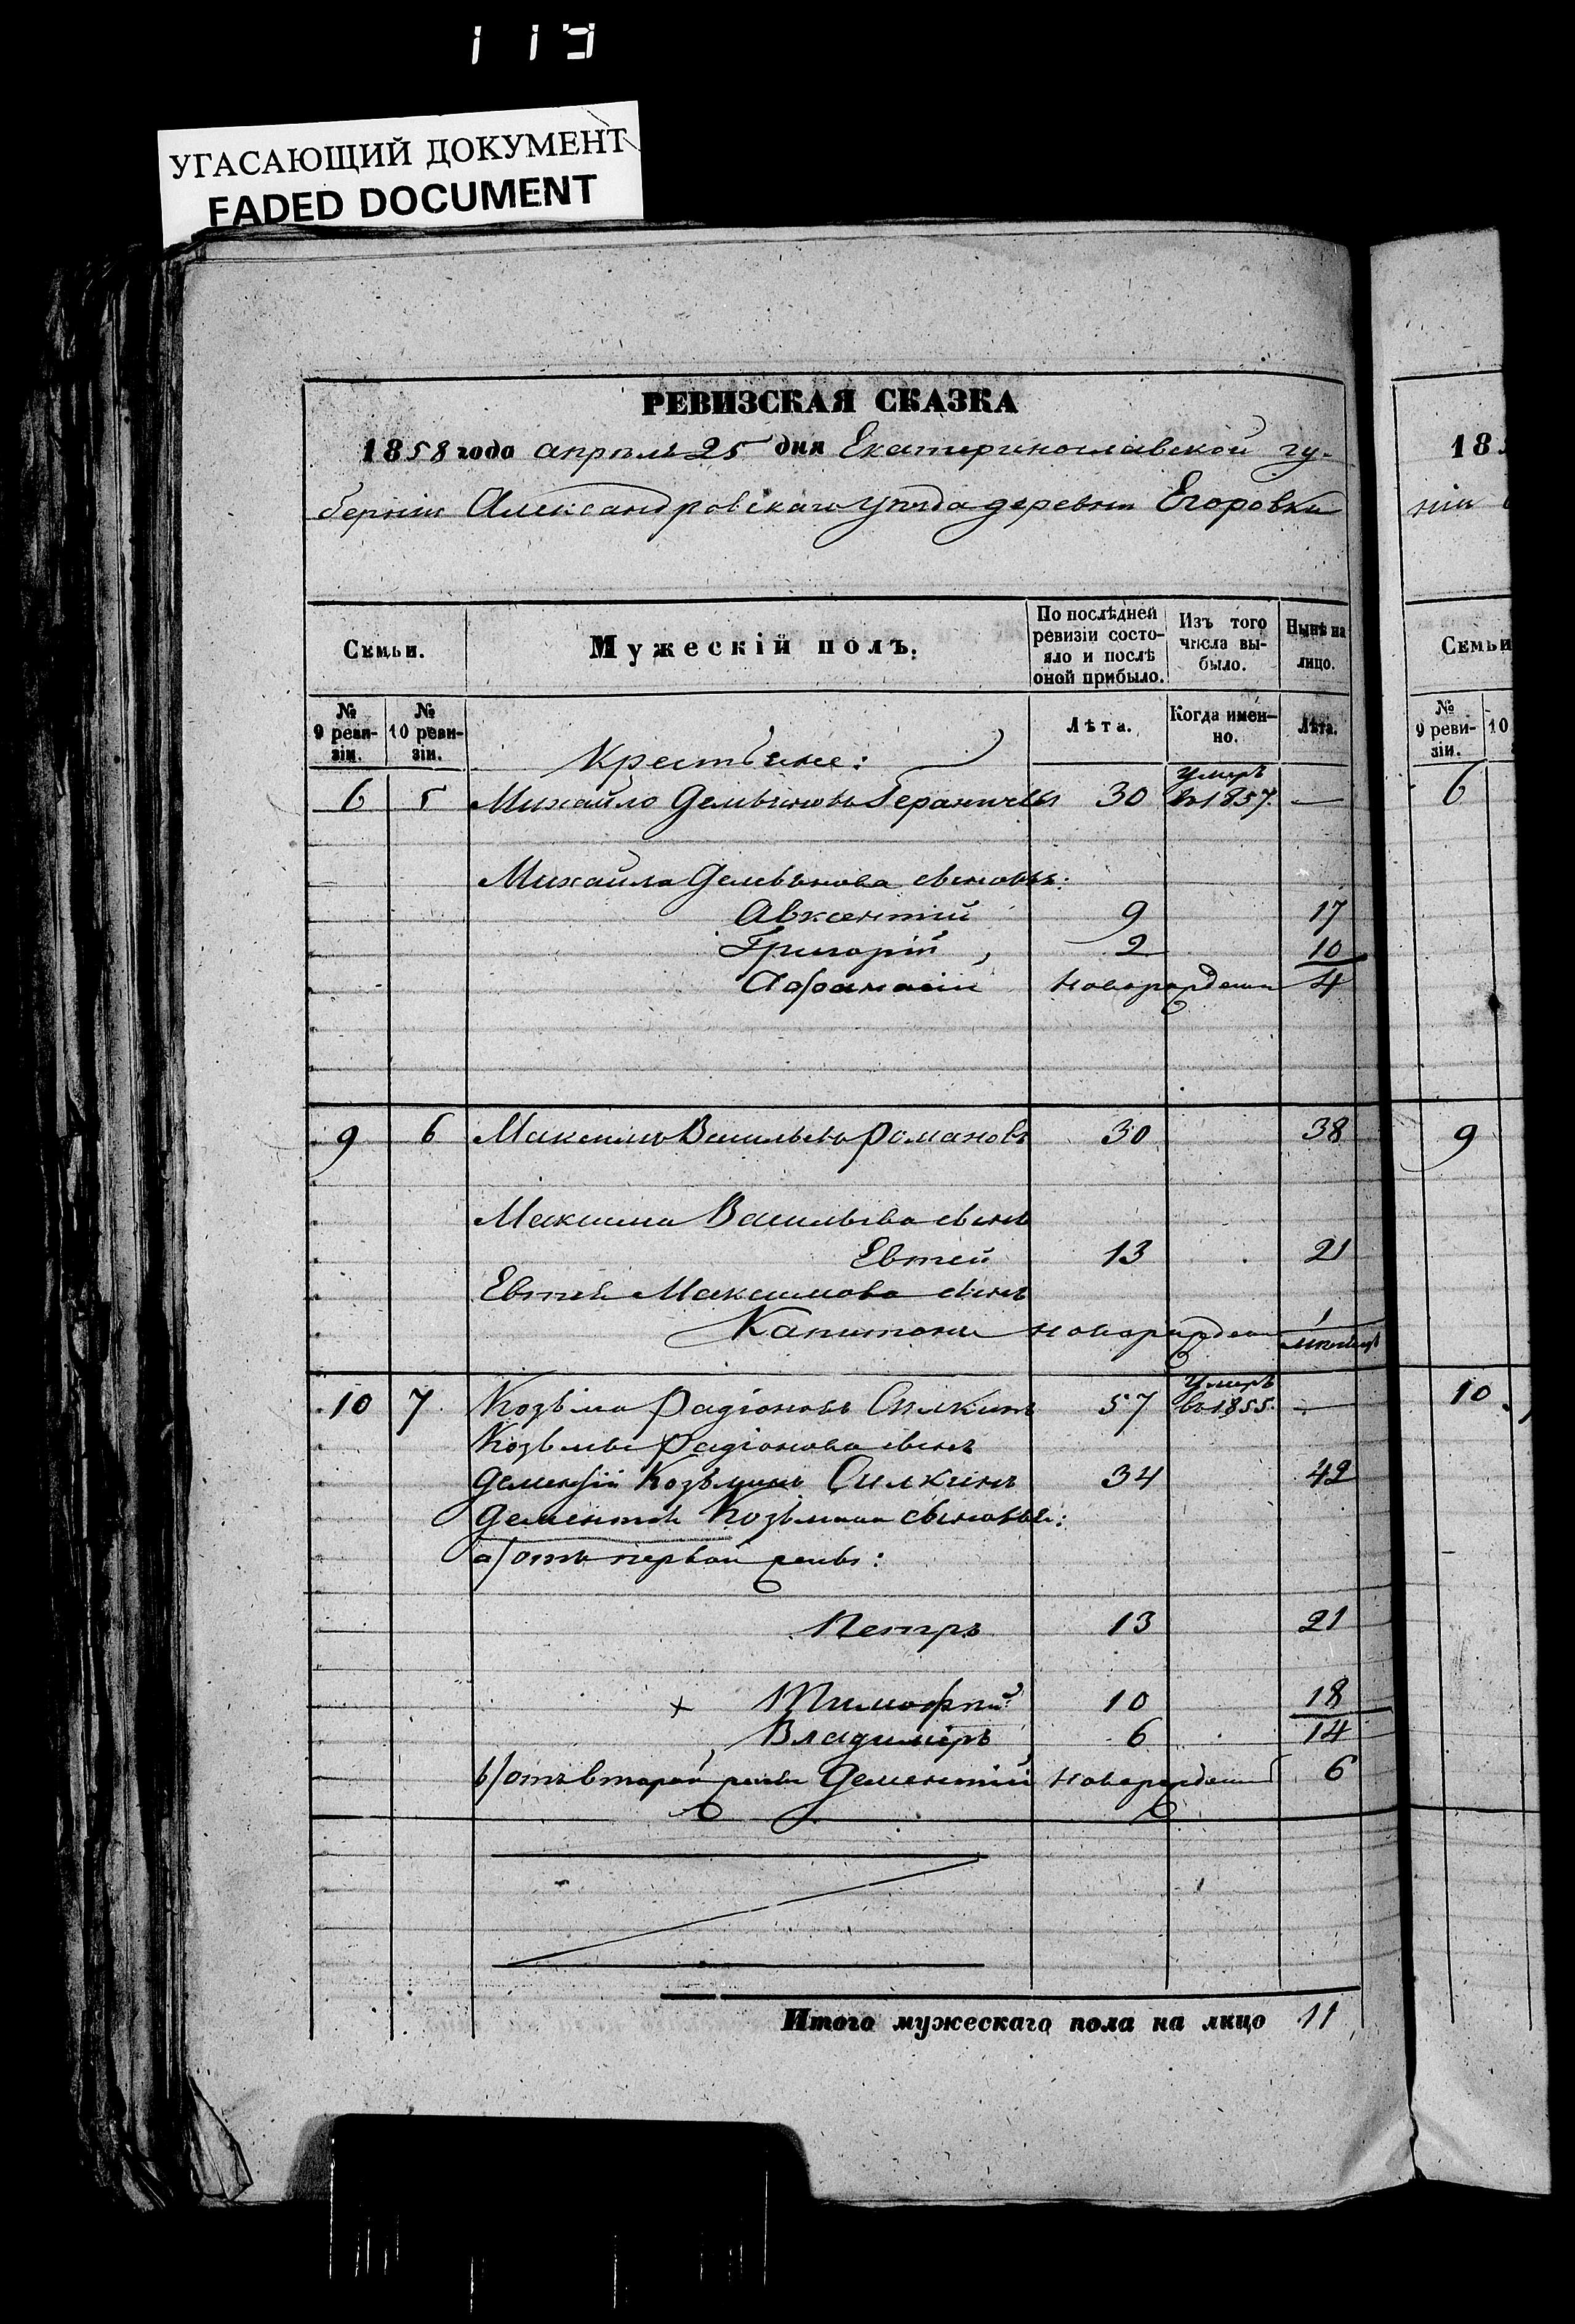 113
УГАСАЮЩИЙ ДОКУМЕНТ
FADED DOCUMENT
РЕВИЗСКАЯ СКАЗКА
1858 года апрѣля 25 дня Екатеринославской гу-
берніи Александровскаго уѣзда деревни Егоровки
Семьи.
Мужескій полъ.
По послѣдней ревизіи состо-яло и послѣ оной прибыло.
Изъ того числа вы-было.
Нынѣ на лицо.
№ 9 реви-зіи.
№ 10 реви-зіи.
Лѣта.
Когда имен-но.
Лѣта.
Крестьяне:
6 5 Михайло Демьяновъ 30 умеръ въ 1857. —
Михайла Демьянова сыновья:
Авксентій 9 17
Григорій 2 10
Афанасій новорожденъ 4
9 6 Максимъ Васильевъ Романовъ 30 38
Максима Васильева сынъ
Евтей 13 21
Евтея Максимова сынъ
Капитонъ новорожден 1 мѣсяцъ
10 7 Козьма Радіоновъ Силкинъ 57 умеръ въ 1855. —
Козьмы Радіонова сынъ
Дементій Козьминъ Силкинъ 34 42
Дементія Козьмина сыновья:
а/ отъ первой жены:
Петръ 13 21
× Тимофѣй 10 18
Владиміръ 6 14
в/ отъ второй жены Дементій новорожденъ 6
Итого мужескаго пола на лицо 11
18
ніи
Семьи
№ 9 реви-зіи.
10
6
9
10